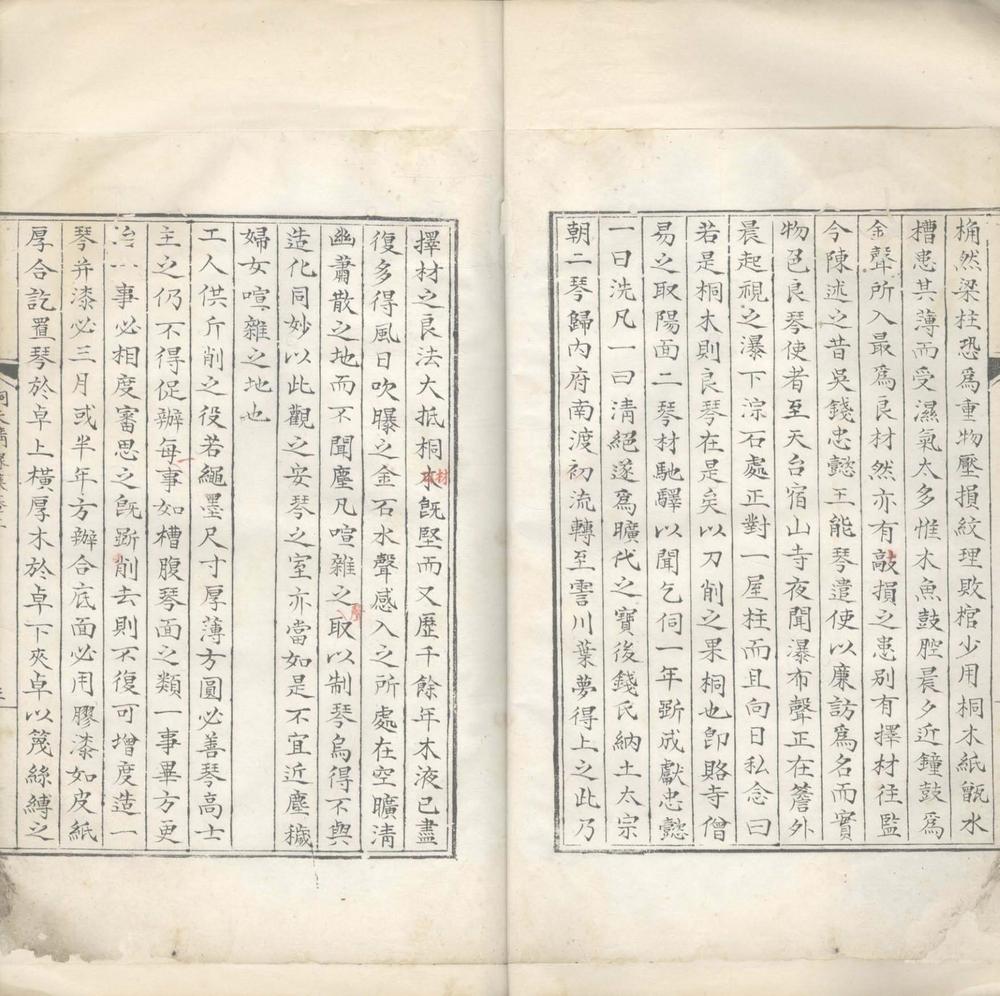 桷然梁柱恐為重物壓損紋理敗棺少用桐木紙甑水
槽患其薄而受濕氣太多惟木魚鼓腔晨夕近鐘鼓為
金聲所入最為良材然亦有敲損之患别有擇材往監
今陳述之昔吳錢忠懿王能琴遣使以廉訪為名而實
物色良琴使者至天台宿山寺夜聞瀑布聲正在簷外
晨起視之瀑下淙石處正對一屋柱而且向日私念曰
若是桐木則良琴在是矣以刀削之果桐也卽賂寺僧
易之取陽面二琴材馳驛以聞乞伺一年斵成獻忠懿
一曰洗凡一曰清絕遂為曠代之寶後錢氏納土太宗
朝二琴歸內府南渡初流轉至霅川葉夢得上之此乃
擇材之良法大抵桐材既堅而又歷千餘年木液已盡
復多得風日吹曝之金石水聲感入之所處在空曠清
幽蕭散之地而不聞塵凡喧雜之聲取以制琴烏得不與
造化同妙以此觀之安琴之室亦當如是不宜近塵穢
婦女喧雜之地也
工人供斤削之役若繩墨尺寸厚薄方圓必善琴高士
主之仍不得促辦每一事如槽腹琴面之類一事畢方更
治事必相度審思之既斵削去則不復可增度造一
琴并漆必三月或半年方辦合底面必用膠漆如皮紙
厚合訖置琴於卓上橫厚木於卓下夾卓以篾絲縛之